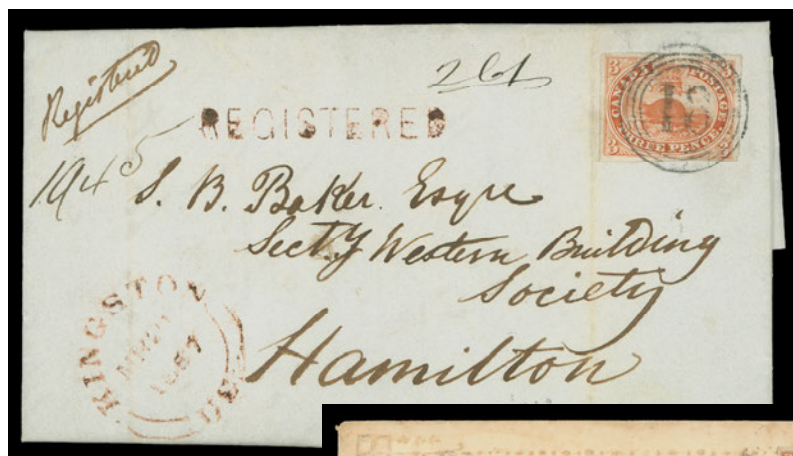 Registered
261
REGISTERED
3 CANADA POSTAGE
THREE PENCE.
1945
S. B. Baker. Esqre
Secty Western Building
Society
Hamilton
KINGSTON
1857